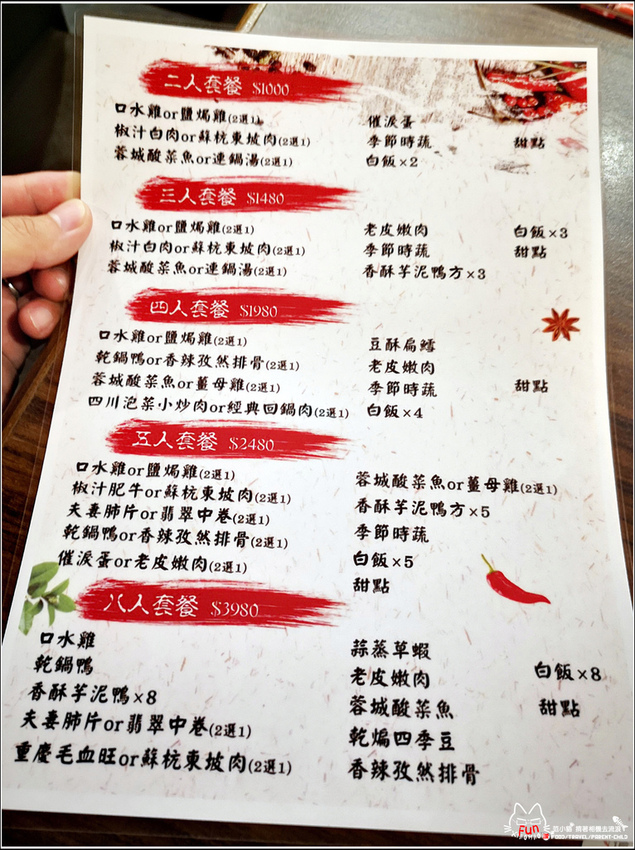 二人套餐 $1000
口水雞or鹽焗雞(2選1)
椒汁白肉or蘇杭東坡肉(2選1)
蓉城酸菜魚or連鍋湯(2選1)
催淚蛋
季節時蔬
白飯×2
甜點
三人套餐 $1480
口水雞or鹽焗雞(2選1)
椒汁白肉or蘇杭東坡肉(2選1)
蓉城酸菜魚or連鍋湯(2選1)
老皮嫩肉
季節時蔬
香酥芋泥鴨方×3
白飯×3
甜點
四人套餐 $1980
口水雞or鹽焗雞(2選1)
乾鍋鴨or香辣孜然排骨(2選1)
蓉城酸菜魚or薑母雞(2選1)
四川泡菜小炒肉or經典回鍋肉(2選1)
豆酥扁鱈
老皮嫩肉
季節時蔬
白飯×4
甜點
五人套餐 $2480
口水雞or鹽焗雞(2選1)
椒汁肥牛or蘇杭東坡肉(2選1)
夫妻肺片or翡翠中卷(2選1)
乾鍋鴨or香辣孜然排骨(2選1)
催淚蛋or老皮嫩肉(2選1)
蓉城酸菜魚or薑母雞(2選1)
香酥芋泥鴨方×5
季節時蔬
白飯×5
甜點
八人套餐 $3980
口水雞
乾鍋鴨
香酥芋泥鴨×8
夫妻肺片or翡翠中卷(2選1)
重慶毛血旺or蘇杭東坡肉(2選1)
蒜蒸草蝦
老皮嫩肉
蓉城酸菜魚
乾煸四季豆
香辣孜然排骨
白飯×8
甜點
Fun
FOOD/TRAVEL/PARENT-CHILD